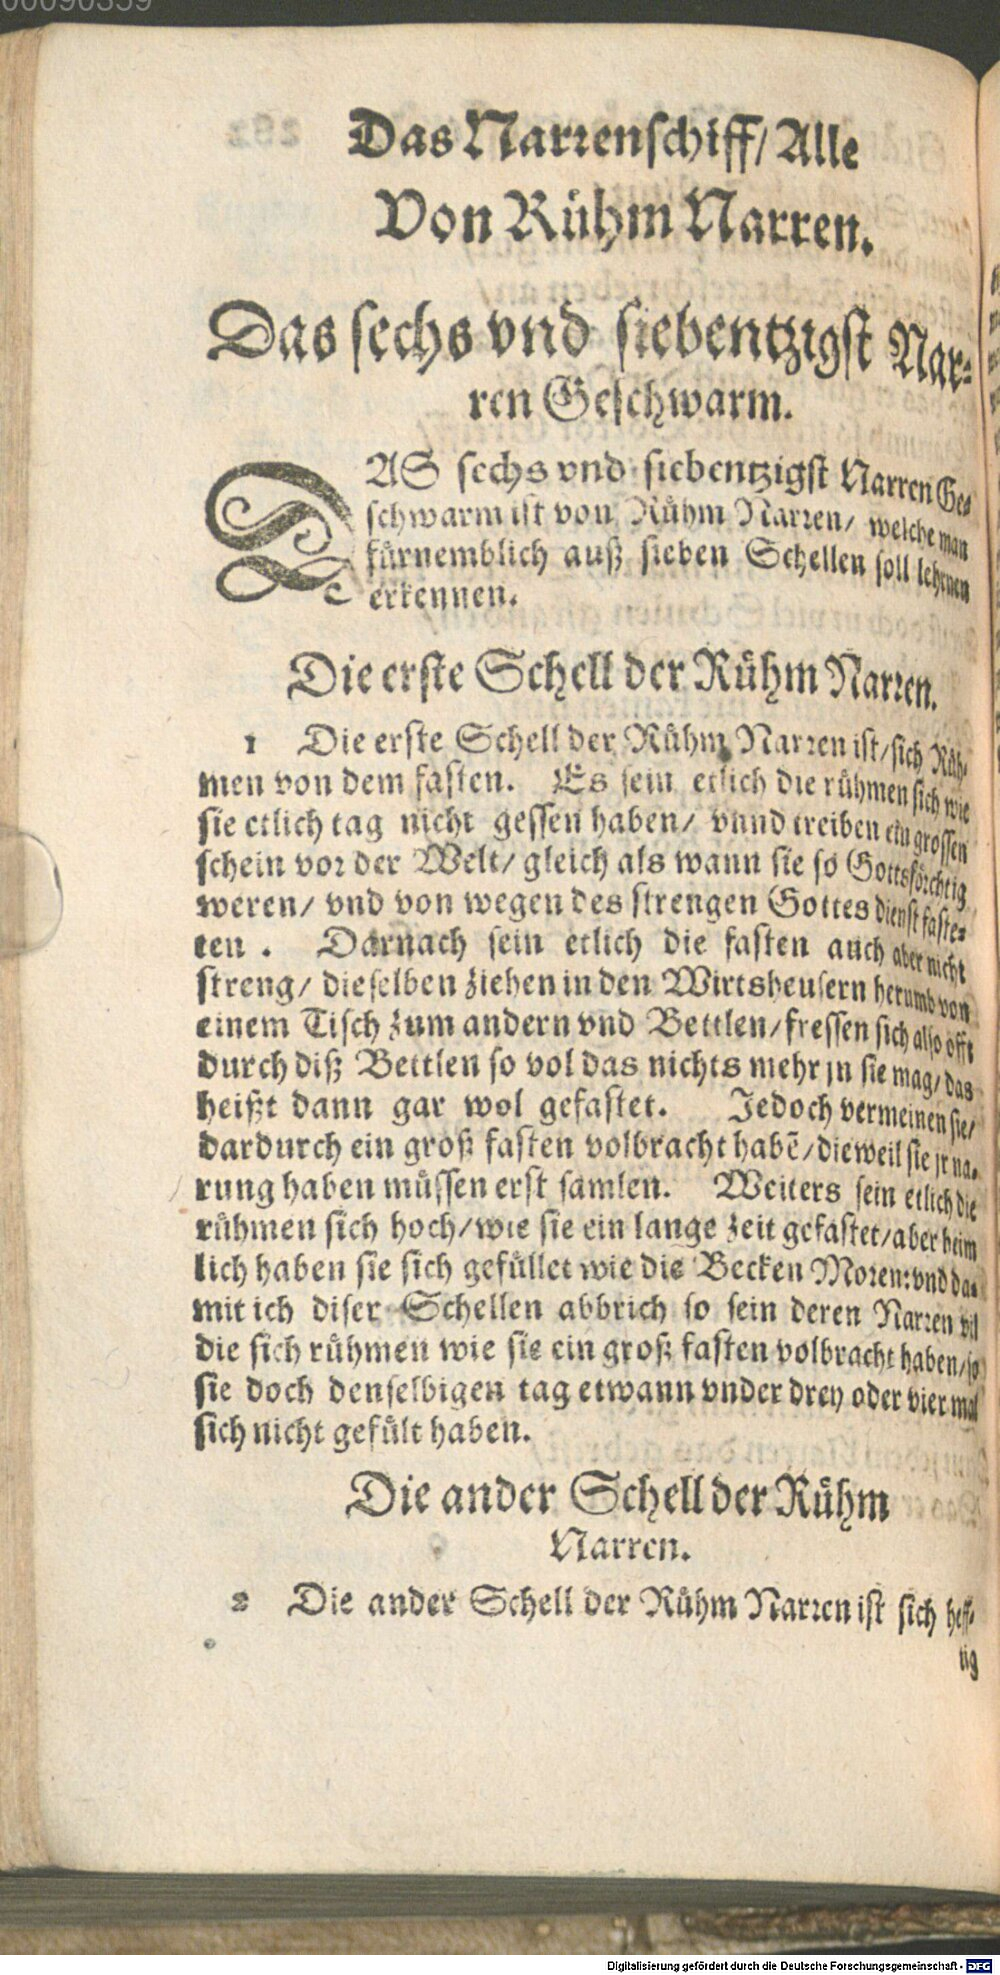 00090359
Das Narrenschiff/ Alle
Von Rühm Narren.
Das sechs vnd siebentzigst Nar-
ren Geschwarm.
DAS sechs vnd siebentzigst Narren Ge-
schwarm ist von Rühm Narren/ welche man
fürnemblich auß sieben Schellen soll lehrnen
erkennen.
Die erste Schell der Rühm Narren.
1 Die erste Schell der Rühm Narren ist/ sich Rüh-
men von dem fasten. Es sein etlich die rühmen sich wie
sie etlich tag nicht gessen haben/ vnnd treiben ein grossen
schein vor der Welt/ gleich als wann sie so Gottsförchtig
weren/ vnd von wegen des strengen Gottes dienst faste-
ten. Darnach sein etlich die fasten auch aber nicht
streng/ dieselben ziehen in den Wirtsheusern herumb von
einem Tisch zum andern vnd Bettlen/ fressen sich also offt
durch diß Bettlen so vol das nichts mehr jn sie mag/ das
heißt dann gar wol gefastet. Jedoch vermeinen sie/
dardurch ein groß fasten volbracht habẽ/ dieweil sie jr na-
rung haben müssen erst samlen. Weiters sein etlich die
rühmen sich hoch/ wie sie ein lange zeit gefastet/ aber heim
lich haben sie sich gefüllet wie die Becken Moren: vnd da-
mit ich diser Schellen abbrich so sein deren Narren vil
die sich rühmen wie sie ein groß fasten volbracht haben/ so
sie doch denselbigen tag etwann vnder drey oder vier mal
sich nicht gefült haben.
Die ander Schell der Rühm
Narren.
2 Die ander Schell der Rühm Narren ist sich heff-
tig
Digitalisierung gefördert durch die Deutsche Forschungsgemeinschaft - DFG